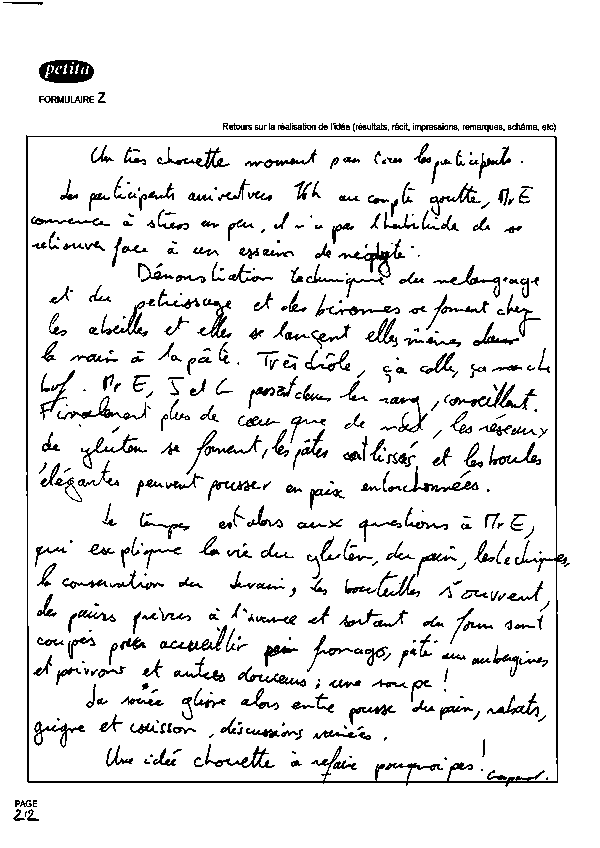 petita
FORMULAIRE Z
Retours sur la réalisation de l'idée (résultats, récit, impressions, remarques, schéma, etc)
Un très chouette moment pour tous les participants.
Les participants arrivent vers 16h au compte goutte, Mr E
commence à stress un peu, il n'a pas l'habitude de se
retrouver face à un essaim de néophyte.
Démonstration technique du mélangeage
et du petrissage et des binomes se forment chez
les abeilles et elles se lançent elles mêmes dans
la main à la pâte. Très drôle, ça colle, ça marche
bof. Mr E, J et L passent dans les rang, conseillent.
Finalement plus de cœur que de mal, les réseaux
de glúten se forment, les pâtes sont lissés, et les boules
élégantes peuvent pousser en paix entorchonnées.
Le temps est alors aux questions à Mr E,
qui explique la vie du gluten, du pain, les techniques,
la conservation du levain, les bouteilles s'ouvrent,
des pains prévus à l'avance et sortant du four sont
coupés pour accueillir fromages, pâté aux aubergines
et poivrons et autres douceurs ; une soupe !
La soirée glisse alors entre pousse du pain, rabats,
grigne et cuisson, discussions variées.
Une idée chouette à refaire pourquoi pas !
PAGE
2/2